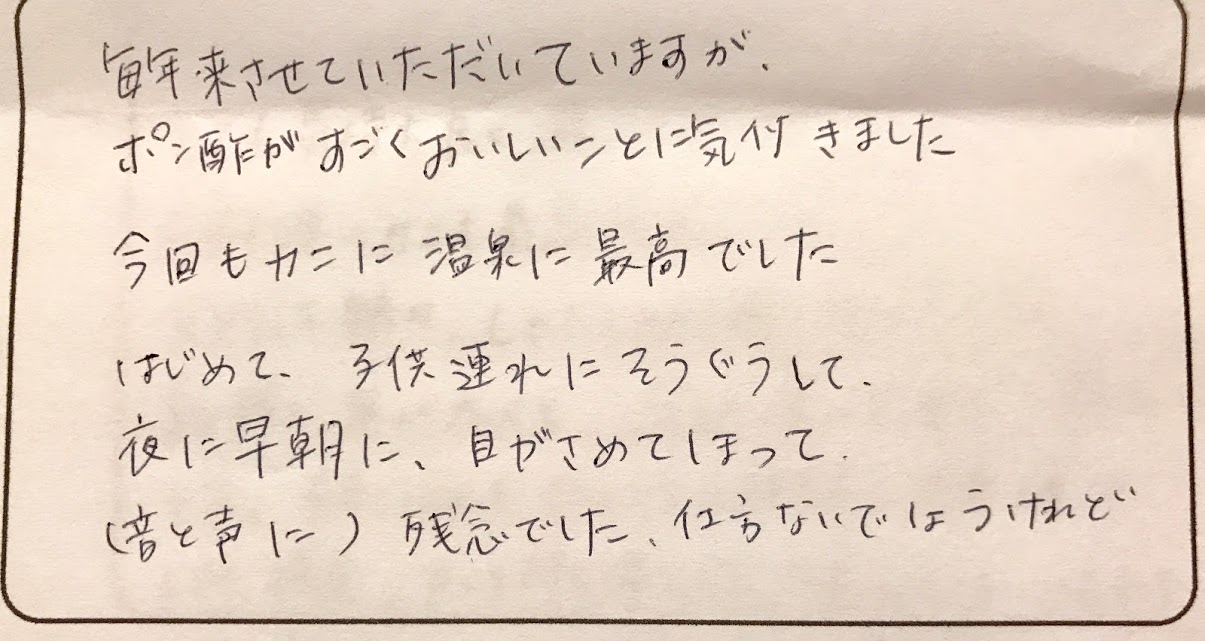 毎年来させていただいていますが、
ポン酢がすごくおいしいことに気付きました
今回もカニに温泉に最高でした
はじめて、子供連れにそうぐうして、
夜に早朝に、目がさめてしまって、
(音と声に) 残念でした、仕方ないでしょうけれど